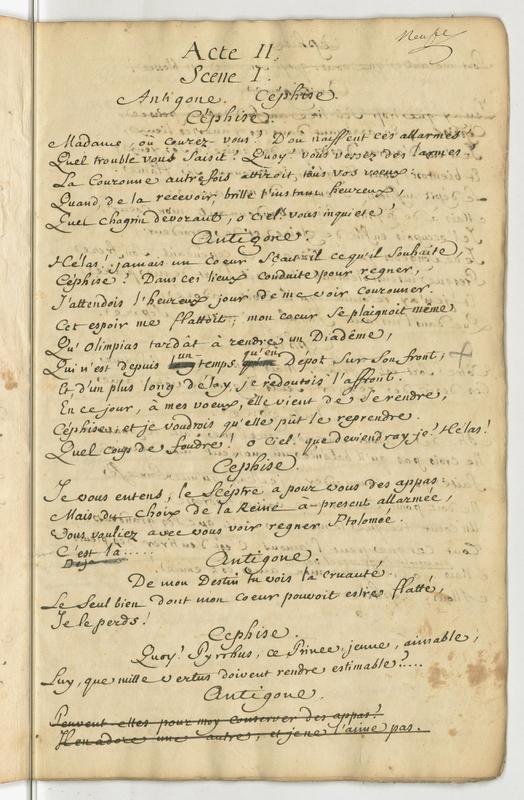 Neuf
Acte II.
Scene I.
Antigone. Céphise.
Céphise.
Madame, où courez-vous? D'où naissent ces allarmes?
Quel trouble vous saisit? Quoy! vous versez des larmes!
La Couronne autrefois attiroit tous vos voeux:
Quand, de la recevoir, brille l'instant heureux,
Quel chagrin dévorant, o ciel! vous inquiete?
Antigone.
Hélas! jamais un Coeur Sçait-il ce qu'il Souhaite,
Céphise? Dans ces lieux conduite pour regner,
J'attendois l'heureux jour de me voir couronner.
Cet espoir me flattoit; mon coeur se plaignoit même
Qu'Olimpias tardât à rendre un Diadême,
Qui n'est depuis un temps qu'en Depot Sur Son front;
Et, d'un plus long délay, je redoutois l'affront.
En ce jour, à mes voeux, elle vient de Se rendre,
Céphise, et je voudrois qu'elle pût le reprendre.
Quel coup de foudre! o Ciel! que deviendray je? Hélas!
Cephise.
Je vous entens, le Scéptre a pour vous des appas:
Mais du choix de la Reine à-present allarmée,
Vous vouliez avec vous voir regner Ptolomée.
C'est là.....
Déja
Antigone.
De mon Destin tu vois la cruauté.
Le Seul bien dont mon Coeur pouvoit estre flatté,
Je le perds!
Cephise.
Quoy! Pyrrhus, ce Prince, jeune, aimable;
Luy, que mille vertus doivent rendre estimable?....
Antigone.
Peuvent-elles pour moy conserver des appas?
Il en adore une autre, et je ne l'aime pas.